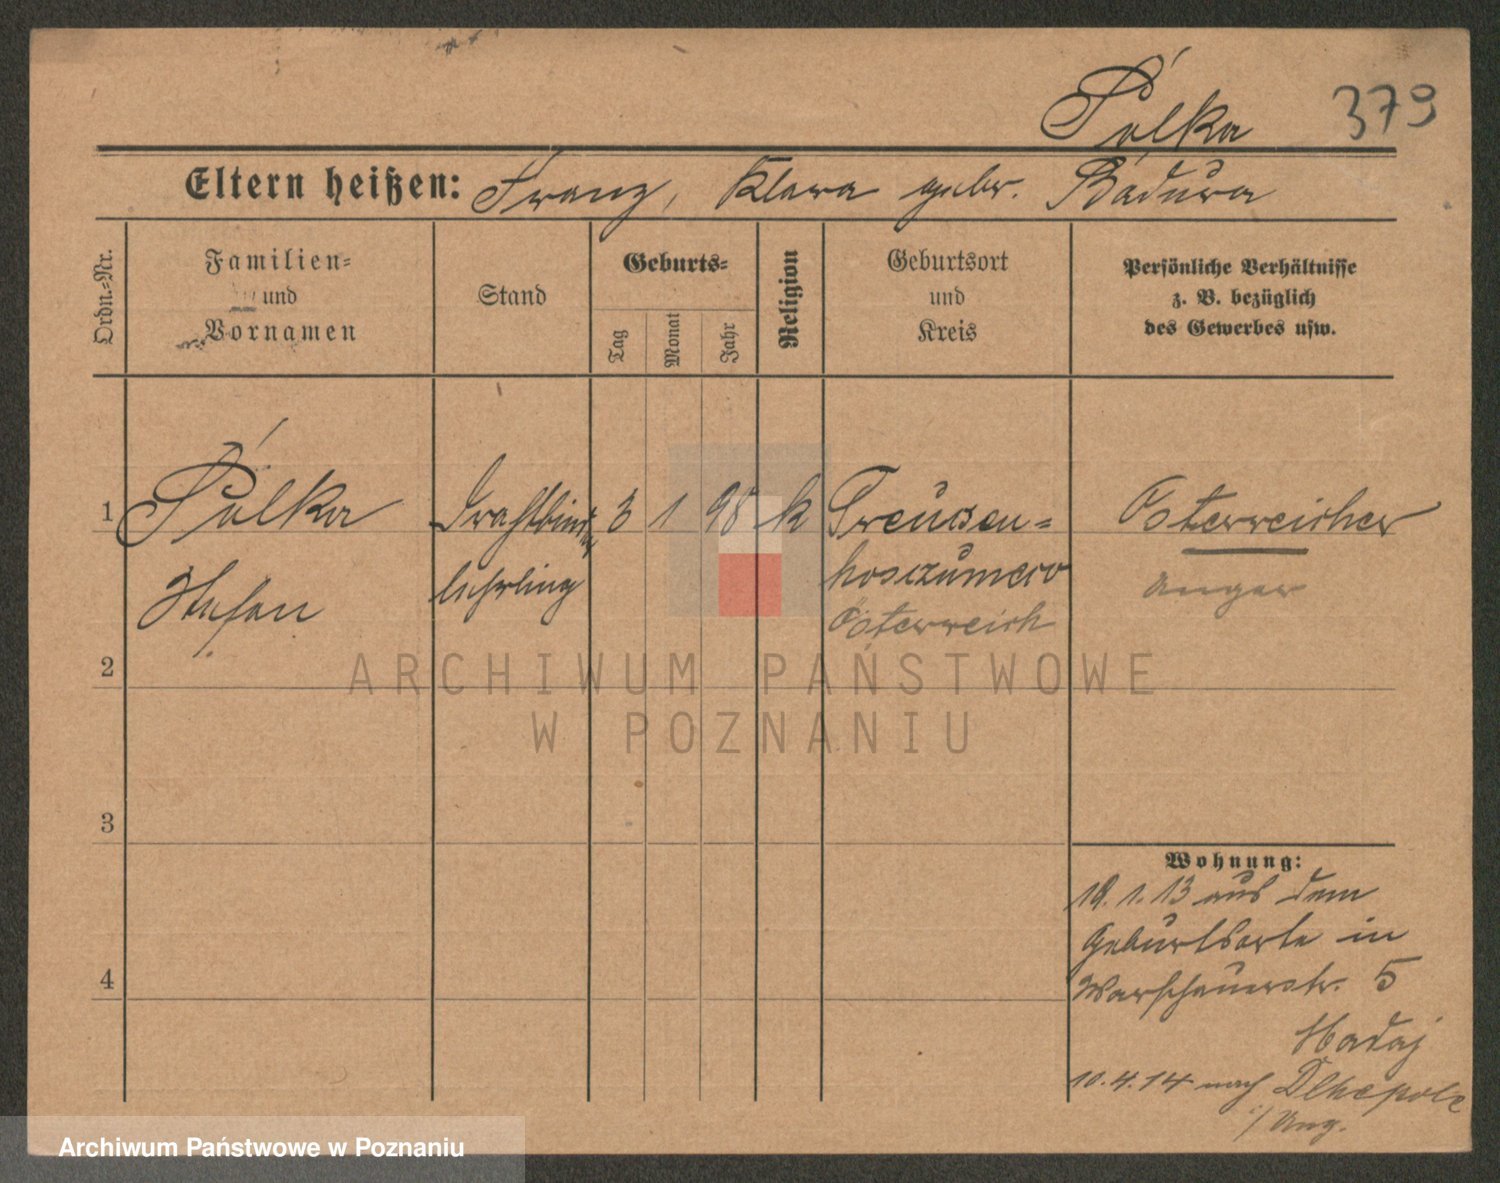 Púlka 379
Eltern heißen: Franz, Klara gebr. Badura
Ordn.=Nr.
Familien=
und
Vornamen
Stand
Geburts=
Tag
Monat
Jahr
Religion
Geburtsort
und
Kreis
Persönliche Verhältnisse
z. B. bezüglich
des Gewerbes usw.
1 Púlka Drahtbinder 3 1 98 k Treucsen= Österreicher
lehrling hosczumero Ungar
Stefan Österreich
2
3
4
Wohnung:
18.1.13 aus dem
Geburtsorte in
Warschauerstr. 5
Hadaj
10.4.14 nach Dlhepole
i/ Ung.
ARCHIWUM PAŃSTWOWE
W POZNANIU
Archiwum Państwowe w Poznaniu